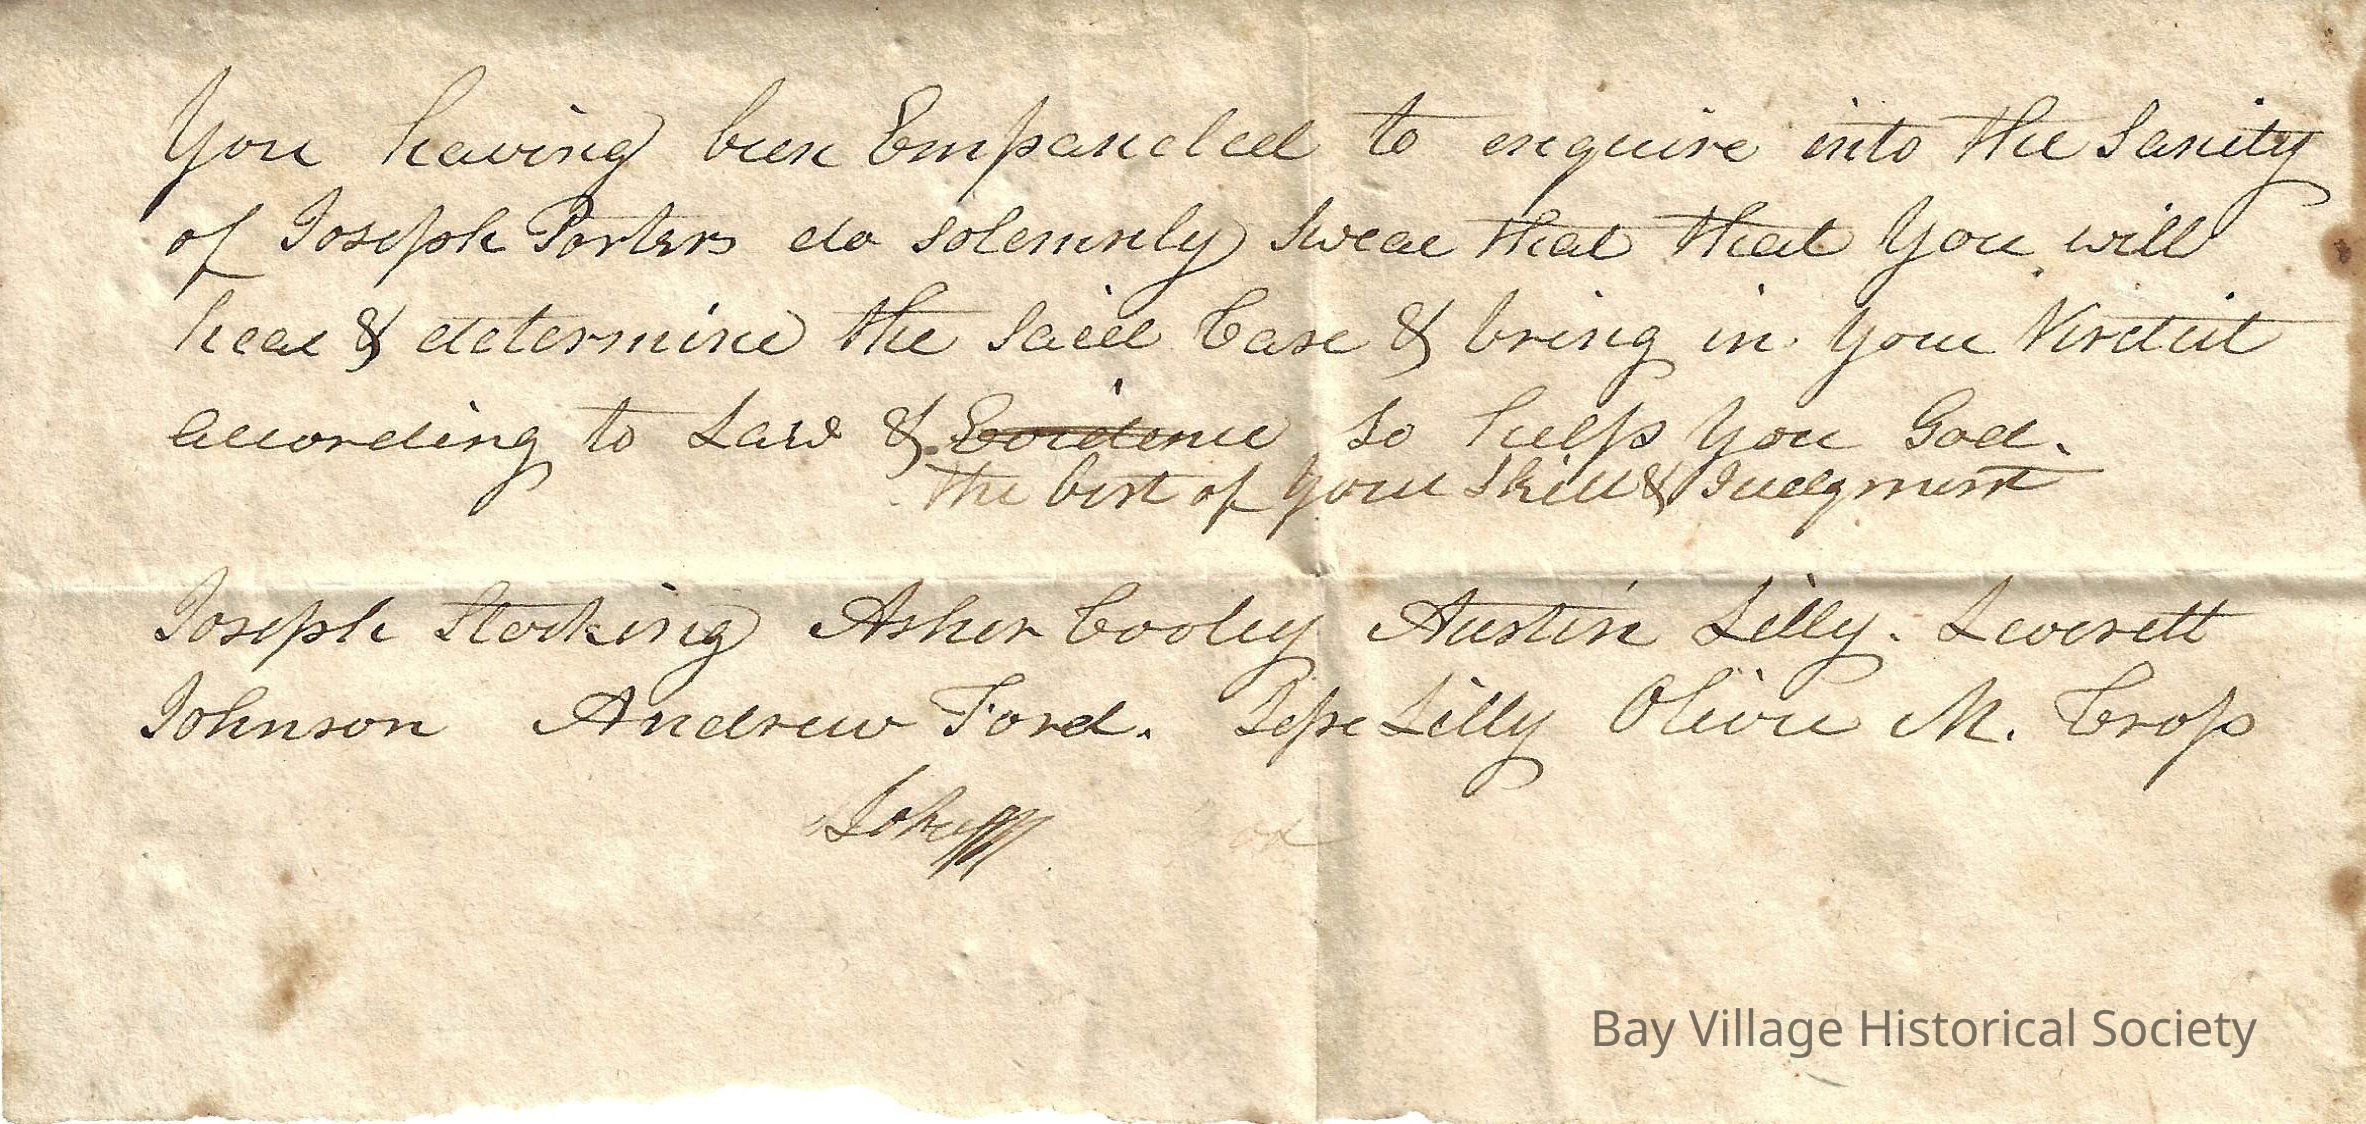 You having been Empaneled to enquire into the Sanity
of Joseph Porters do solemnly Swear that that You will
hear & determine the Said Case & bring in your Verdict
according to Law & Evidence so help You God.
the best of your Skill & Judgment
Joseph Stocking Asher Cooley Austin Lilly. Leverett
Johnson Andrew Ford. Jesse Lilly Olive M. Cross
Bay Village Historical Society